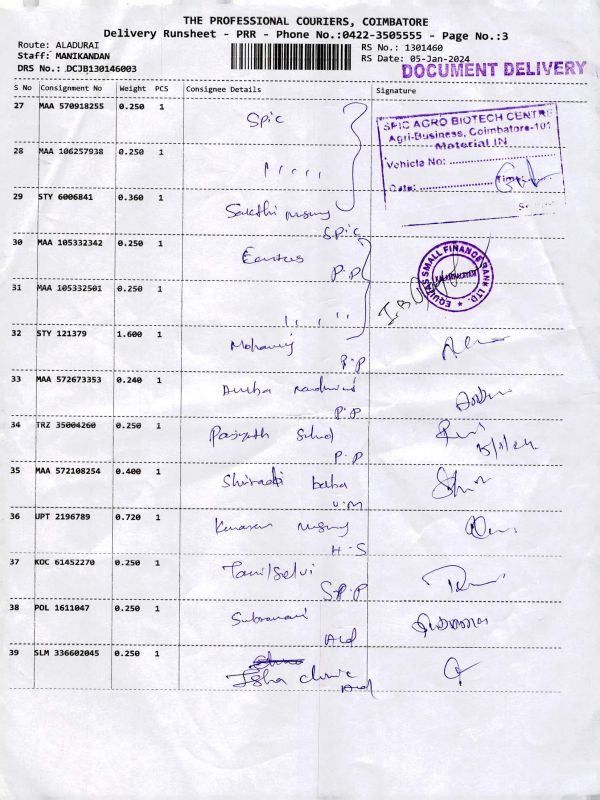 THE PROFESSIONAL COURIERS, COIMBATORE
Delivery Runsheet - PRR - Phone No.:0422-3505555 - Page No.:3
Route: ALADURAI
Staff: MANIKANDAN
DRS No.: DCJB130146003
RS No.: 1301460
RS Date: 05-Jan-2024
DOCUMENT DELIVERY
S No Consignment No Weight PCS Consignee Details Signature
27 MAA 570918255 0.250 1 Spic
SPIC AGRO BIOTECH CENTRE
Agri-Business, Coimbatore-101
Material IN
Vehicle No:
Date: Time:
28 MAA 106257938 0.250 1
29 STY 6006841 0.360 1 Sakthi
Spic
30 MAA 105332342 0.250 1
P.P
EQUITAS SMALL FINANCE BANK LTD.
31 MAA 105332501 0.250 1
32 STY 121379 1.600 1
P.P
33 MAA 572673353 0.240 1
P.P
34 TRZ 35004260 0.250 1
P.P
5/1/24
35 MAA 572108254 0.400 1 Shiradi baba
V.M
36 UPT 2196789 0.720 1
H.S
37 KOC 61452270 0.250 1 Tamilselvi
S.P.P
38 POL 1611047 0.250 1 Subramani
Ald
39 SLM 336602045 0.250 1
Isha clinic
Ald